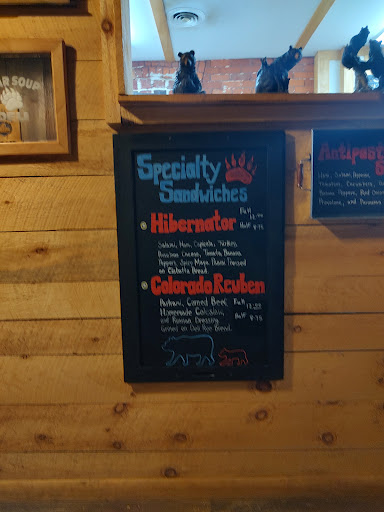 AR SOUP
Specialty
Sandwiches
Hibernator Full
Half 8.75
Salami, Ham, Capicola, Turkey,
Provolone Cheese, Tomato, Banana
Peppers, Spicy Mayo. Then Toasted
on Ciabatta Bread.
Colorado Reuben
Pastrami, Corned Beef, Full
Homemade Coleslaw, Half 8.75
and Russian Dressing
Grilled on Deli Rye Bread.
Antipast
Ham, Salami, Pepperoni,
Tomatoes, Cucumbers,
Banana Peppers, Red Onion
Provolone, and Parmesan